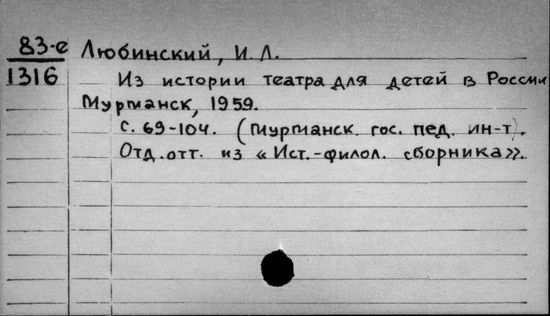 83-е Любинский, И.Л.
1316 Из истории театра для детей в России
Мурманск, 1959.
с. 69-104. (Мурманск. гос. пед. ин-т).
Отд. отт. из «Ист.-филол. сборника».